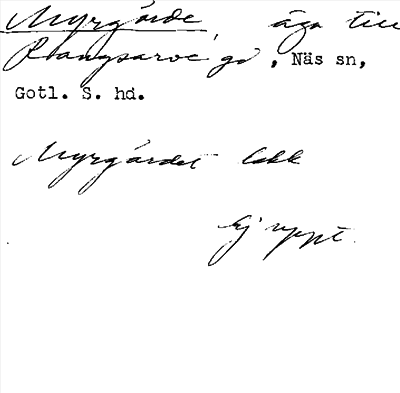 Myrgärde, äga till
Rangsarve gd, Näs sn,
Gotl. S. hd.
Myrgärdet lokk
Ej uppt.